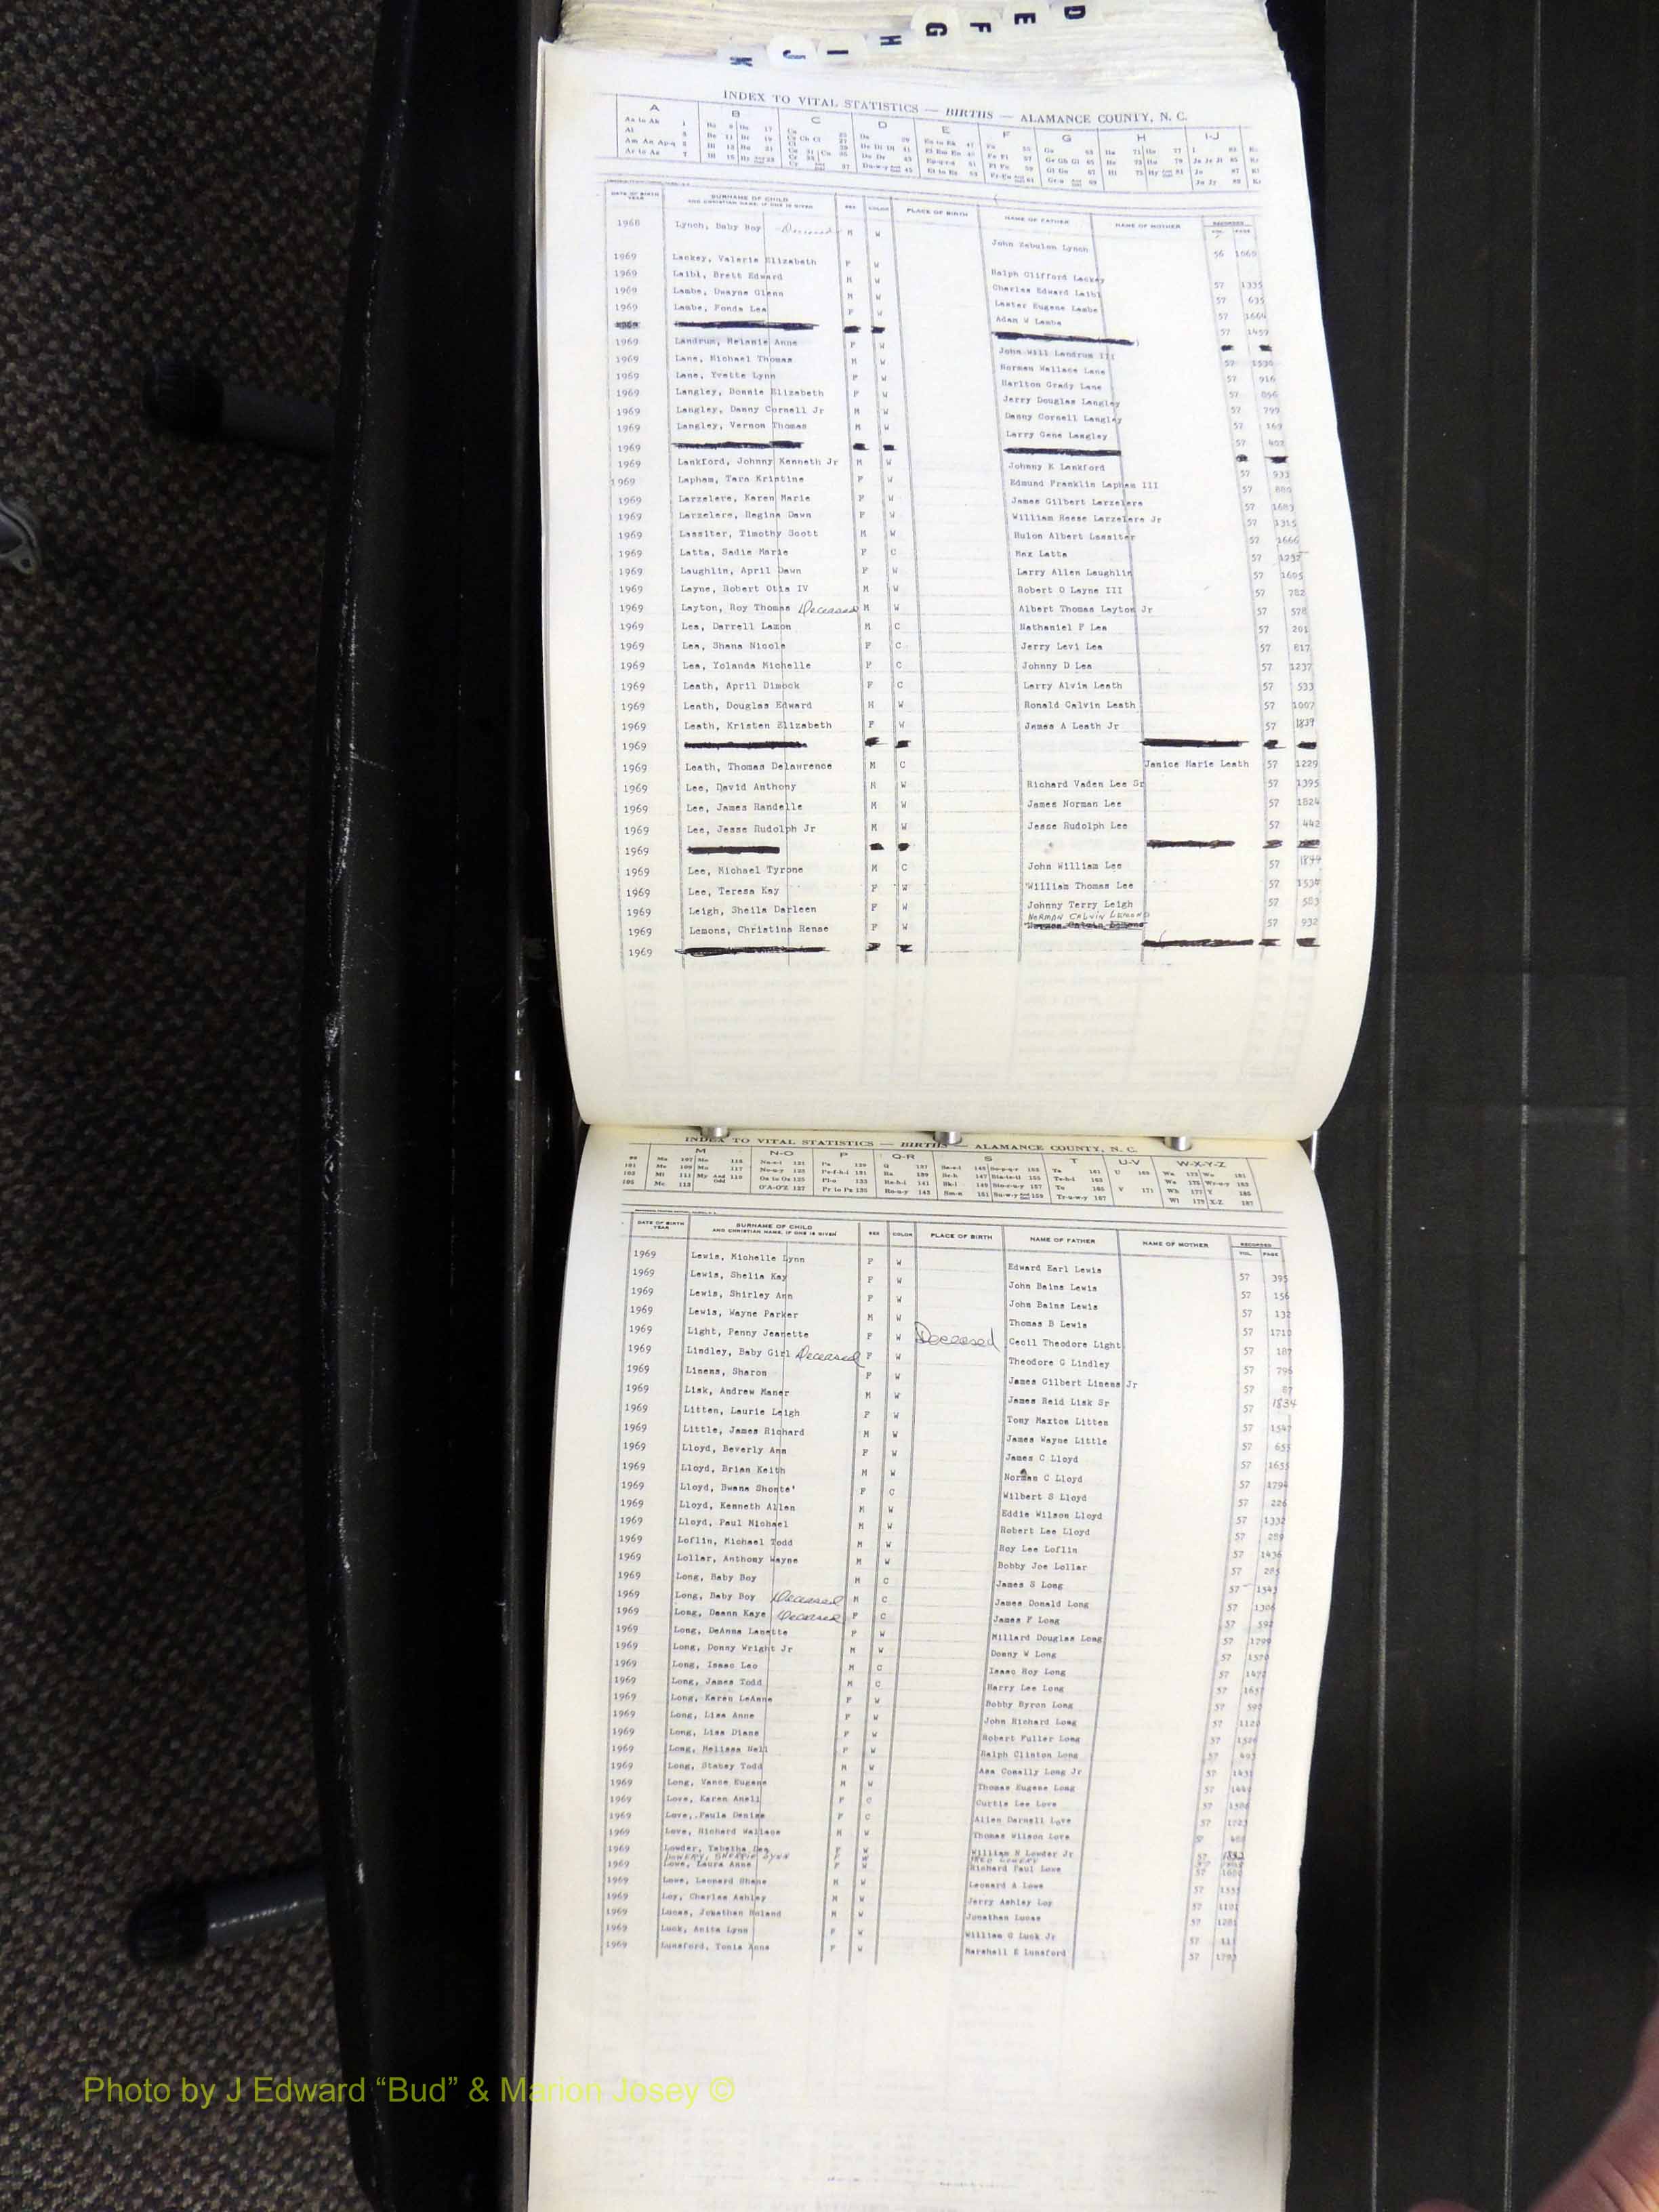 D
E
F
G
H
I
J
K
INDEX TO VITAL STATISTICS — BIRTHS — ALAMANCE COUNTY, N. C.
A B C D E F G H I-J
DATE OF BIRTH YEAR SURNAME OF CHILD AND CHRISTIAN NAME, IF ONE IS GIVEN SEX COLOR PLACE OF BIRTH NAME OF FATHER NAME OF MOTHER RECORDED VOL. PAGE
1968 Lynch, Baby Boy Deceased M W John Zebulon Lynch 56 1060
1969 Lackey, Valerie Elizabeth F W Ralph Clifford Lackey 57 1335
1969 Laibl, Brett Edward M W Charles Edward Laibl 57 635
1969 Lambe, Dwayne Glenn M W Lester Eugene Lambe 57 1664
1969 Lambe, Fonda Lea F W Adam W Lambe 57 1459
1969 Landrum, Melanie Anne F W John Will Landrum III 57 1530
1969 Lane, Michael Thomas M W Norman Wallace Lane 57 916
1969 Lane, Yvette Lynn F W Harlton Grady Lane 57 856
1969 Langley, Bonnie Elizabeth F W Jerry Douglas Langley 57 799
1969 Langley, Danny Cornell Jr M W Danny Cornell Langley 57 169
1969 Langley, Vernon Thomas M W Larry Gene Langley 57 407
1969
1969 Lankford, Johnny Kenneth Jr M W Johnny K Lankford 57 933
1969 Lapham, Tara Kristine F W Edmund Franklin Lapham III 57 880
1969 Larzelere, Karen Marie F W James Gilbert Larzelere 57 1683
1969 Larzelere, Regina Dawn F W William Reese Larzelere Jr 57 1315
1969 Lassiter, Timothy Scott M W Hulon Albert Lassiter 57 1666
1969 Latta, Sadie Marie F C Max Latta 57 1232
1969 Laughlin, April Dawn F W Larry Allen Laughlin 57 1605
1969 Layne, Robert Otis IV M W Robert O Layne III 57 782
1969 Layton, Roy Thomas Deceased M W Albert Thomas Layton Jr 57 578
1969 Lea, Darrell Lamon M C Nathaniel F Lea 57 201
1969 Lea, Shana Nicole F C Jerry Levi Lea 57 817
1969 Lea, Yolanda Michelle F C Johnny D Lea 57 1237
1969 Leath, April Dimock F C Larry Alvin Leath 57 533
1969 Leath, Douglas Edward M W Ronald Calvin Leath 57 1007
1969 Leath, Kristen Elizabeth F W James A Leath Jr 57 1839
1969
1969 Leath, Thomas Delawrence M C Janice Marie Leath 57 1229
1969 Lee, David Anthony M W Richard Vaden Lee Sr 57 1395
1969 Lee, James Randelle M W James Norman Lee 57 1824
1969 Lee, Jesse Rudolph Jr M W Jesse Rudolph Lee 57 442
1969
1969 Lee, Michael Tyrone M C John William Lee 57 1844
1969 Lee, Teresa Kay F W William Thomas Lee 57 1534
1969 Leigh, Sheila Darleen F W Johnny Terry Leigh 57 583
NORMAN CALVIN LEMONS
1969 Lemons, Christina Renae F W 57 932
1969
INDEX TO VITAL STATISTICS — BIRTHS — ALAMANCE COUNTY, N. C.
M N-O P Q-R S T U-V W-X-Y-Z
DATE OF BIRTH YEAR SURNAME OF CHILD AND CHRISTIAN NAME, IF ONE IS GIVEN SEX COLOR PLACE OF BIRTH NAME OF FATHER NAME OF MOTHER RECORDED VOL. PAGE
1969 Lewis, Michelle Lynn F W Edward Earl Lewis 57 395
1969 Lewis, Shelia Kay F W John Bains Lewis 57 156
1969 Lewis, Shirley Ann F W John Bains Lewis 57 132
1969 Lewis, Wayne Parker M W Thomas B Lewis 57 1710
1969 Light, Penny Jeanette F W Deceased Cecil Theodore Light 57 187
1969 Lindley, Baby Girl Deceased F W Theodore G Lindley 57 796
1969 Linens, Sharon F W James Gilbert Linens Jr 57 87
1969 Lisk, Andrew Maner M W James Reid Lisk Sr 57 1834
1969 Litten, Laurie Leigh F W Tony Maxton Litten 57 1547
1969 Little, James Richard M W James Wayne Little 57 655
1969 Lloyd, Beverly Ann F W James C Lloyd 57 1655
1969 Lloyd, Brian Keith M W Norman C Lloyd 57 1794
1969 Lloyd, Bwana Shonte' F C Wilbert S Lloyd 57 226
1969 Lloyd, Kenneth Allen M W Eddie Wilson Lloyd 57 1332
1969 Lloyd, Paul Michael M W Robert Lee Lloyd 57 289
1969 Loflin, Michael Todd M W Roy Lee Loflin 57 1436
1969 Lollar, Anthony Wayne M W Bobby Joe Lollar 57 285
1969 Long, Baby Boy M C James S Long 57 1543
1969 Long, Baby Boy Deceased M C James Donald Long 57 1306
1969 Long, Deann Kaye Deceased F C James F Long 57 592
1969 Long, DeAnna Lanette F W Millard Douglas Long 57 1799
1969 Long, Donny Wright Jr M W Donny W Long 57 1570
1969 Long, Isaac Leo M C Isaac Roy Long 57 1472
1969 Long, James Todd M C Harry Lee Long 57 1657
1969 Long, Karen LeAnne F W Bobby Byron Long 57 590
1969 Long, Lisa Anne F W John Richard Long 57 1120
1969 Long, Lisa Diane F W Robert Fuller Long 57 1526
1969 Long, Melissa Nell F W Ralph Clinton Long 57 493
1969 Long, Stacey Todd M W Asa Conally Long Jr 57 1431
1969 Long, Vance Eugene M W Thomas Eugene Long 57 1449
1969 Love, Karen Anell F C Curtis Lee Love 57 1506
1969 Love, Paula Denise F C Allen Darnell Love 57 1823
1969 Love, Richard Wallace M W Thomas Wilson Love 57 488
1969 Lowder, Tabetha Dea F W William N Lowder Jr 57
LOWERY, SHERRIE LYNN F W FRED LOWERY
1969 Lowe, Laura Anne F W Richard Paul Lowe 57 1680
1969 Lowe, Leonard Shane M W Leonard A Lowe 57 1555
1969 Loy, Charles Ashley M W Jerry Ashley Loy 57 1191
1969 Lucas, Jonathan Roland M W Jonathan Lucas 57 1281
1969 Luck, Anita Lynn F W William G Luck Jr 57 111
1969 Lunsford, Tonia Anne F W Marshall E Lunsford 57 1793
Photo by J Edward “Bud” & Marion Josey ©